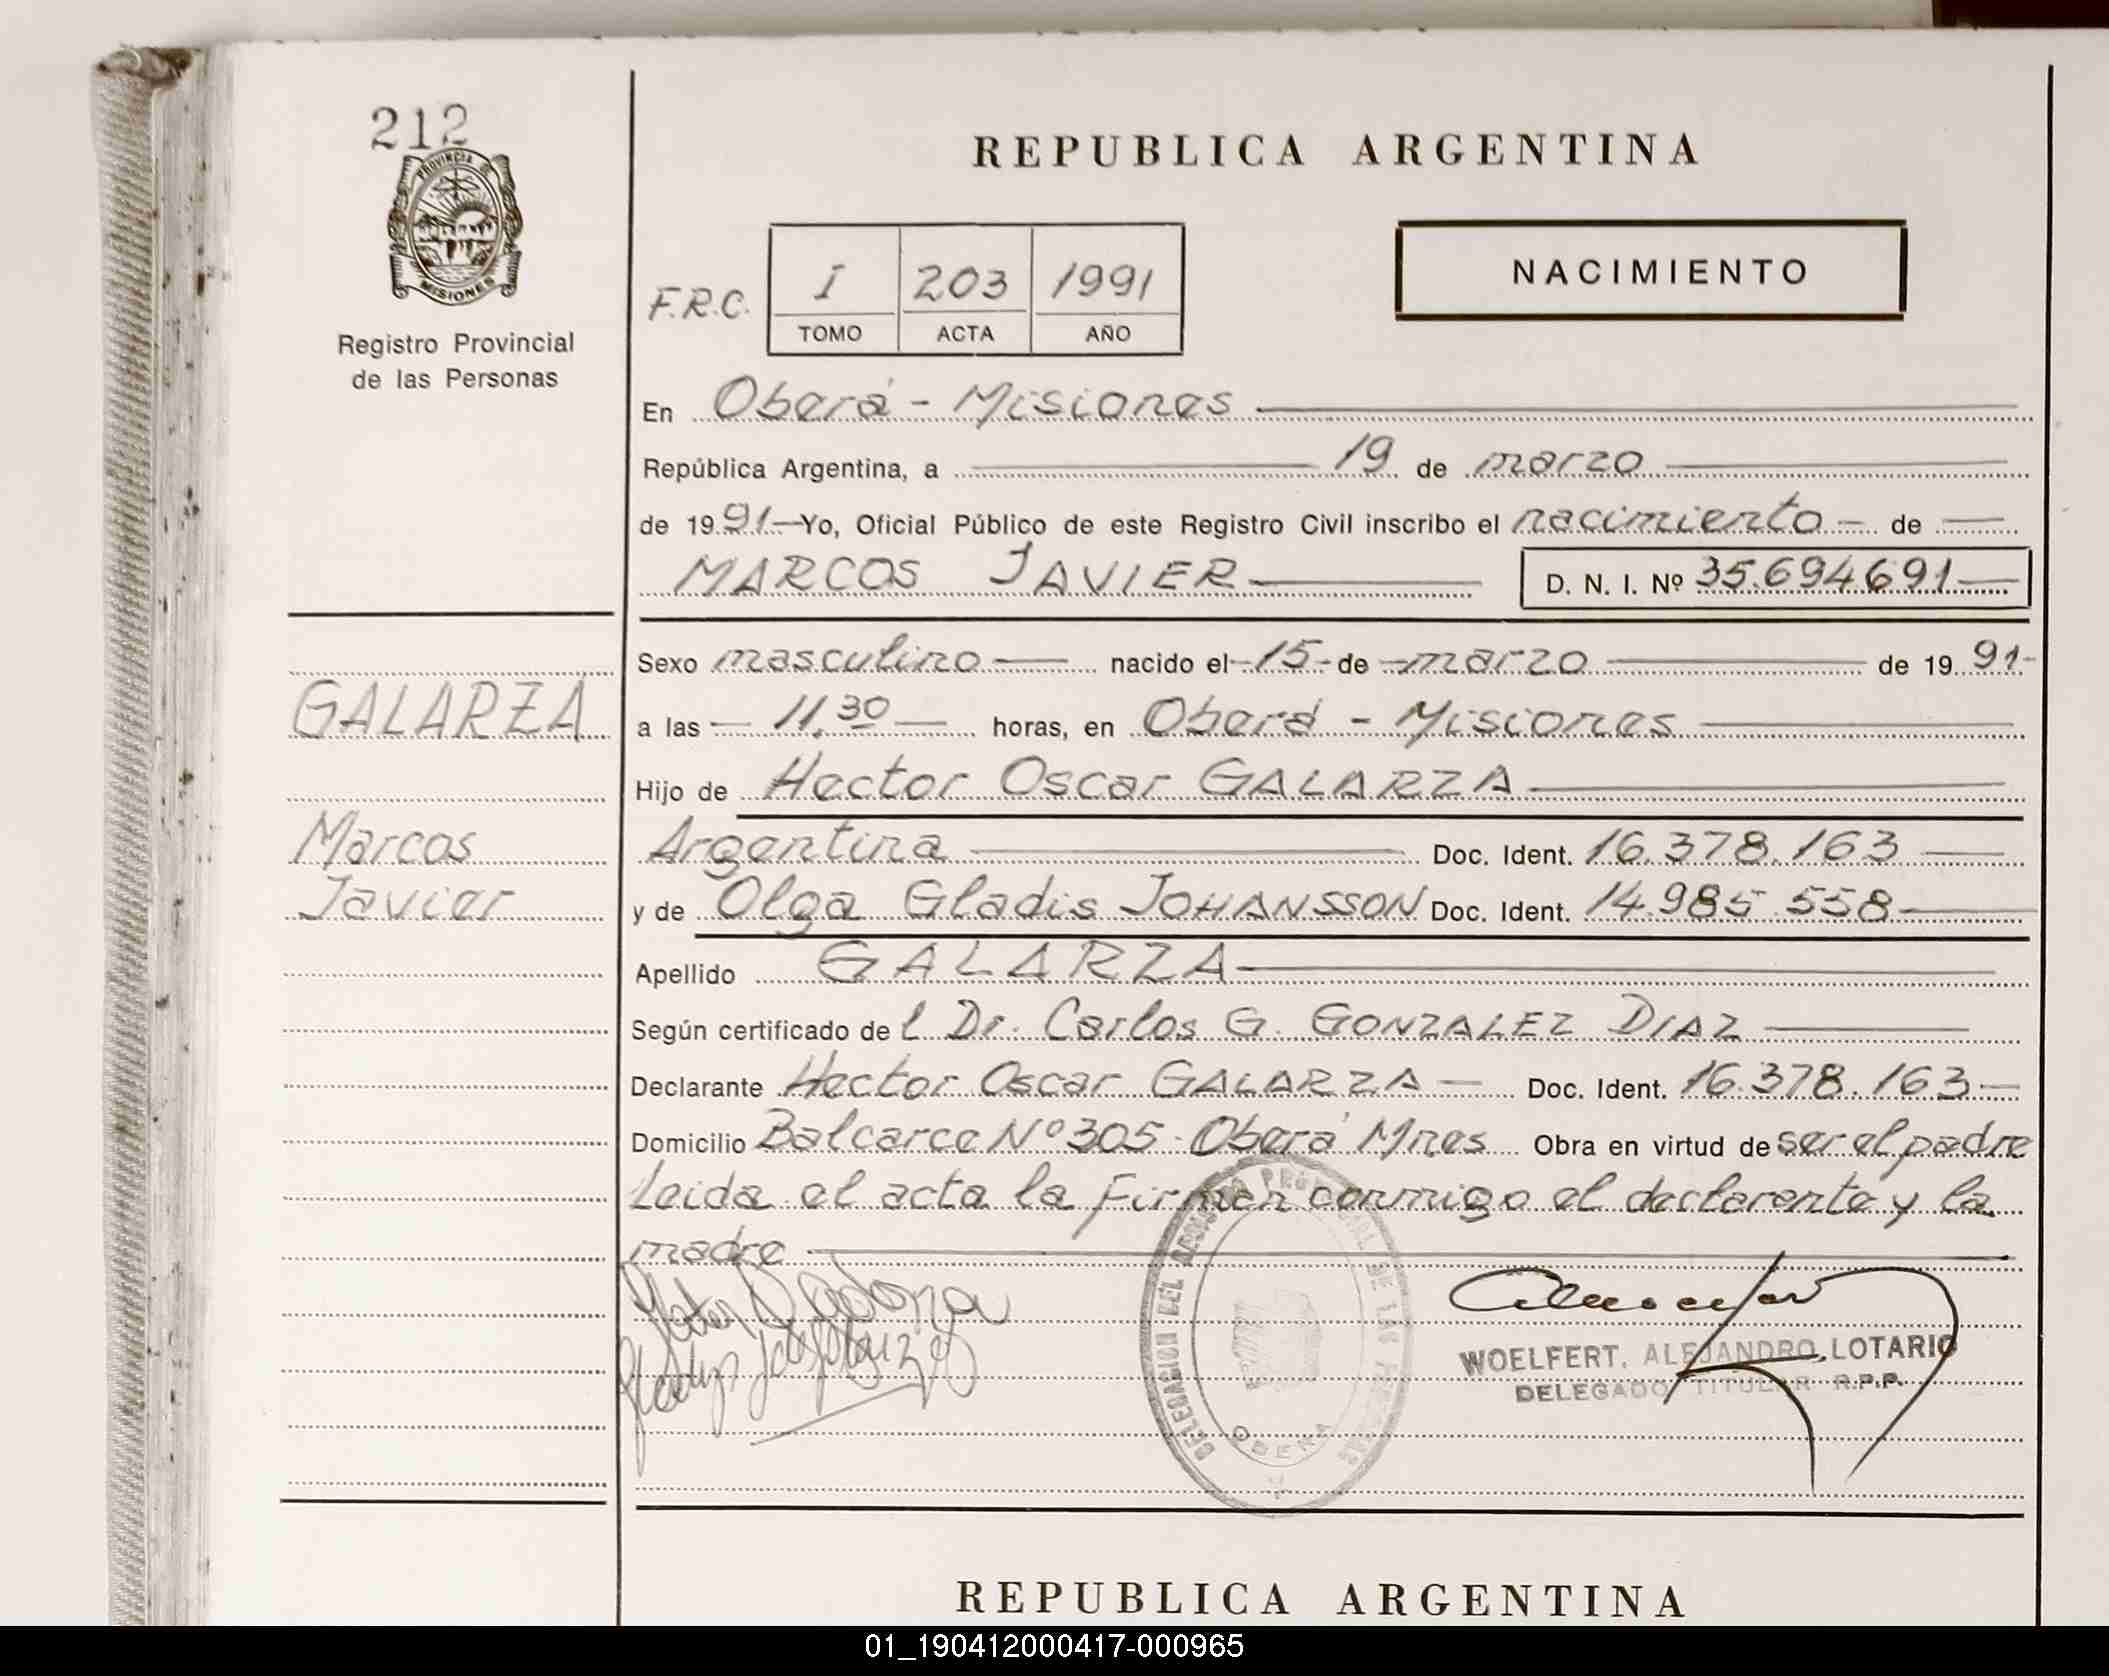 212
PROVINCIA DE
MISIONES
Registro Provincial
de las Personas
REPUBLICA ARGENTINA
F.R.C.
I 203 1991
TOMO ACTA AÑO
NACIMIENTO
En Oberá - Misiones
República Argentina, a 19 de marzo
de 1991 Yo, Oficial Público de este Registro Civil inscribo el nacimiento de
MARCOS JAVIER D. N. I. Nº 35.694.691
Sexo masculino nacido el 15 de marzo de 1991
GALARZA
a las 11.30 horas, en Oberá - Misiones
Hijo de Hector Oscar GALARZA
Marcos
Argentina Doc. Ident. 16.378.163
Javier
y de Olga Gladis JOHANSSON Doc. Ident. 14.985.558
Apellido GALARZA
Según certificado de l Dr. Carlos G. GONZALEZ DIAZ
Declarante Hector Oscar GALARZA Doc. Ident. 16.378.163
Domicilio Balcarce Nº 305 - Oberá Mnes Obra en virtud de ser el padre
Leida el acta la firman conmigo el declarante y la
madre
DELEGACION DEL REGISTRO PROVINCIAL DE LAS PERSONAS
OBERA
WOELFERT, ALEJANDRO LOTARIO
DELEGADO TITULAR R.P.P.
REPUBLICA ARGENTINA
01_190412000417-000965